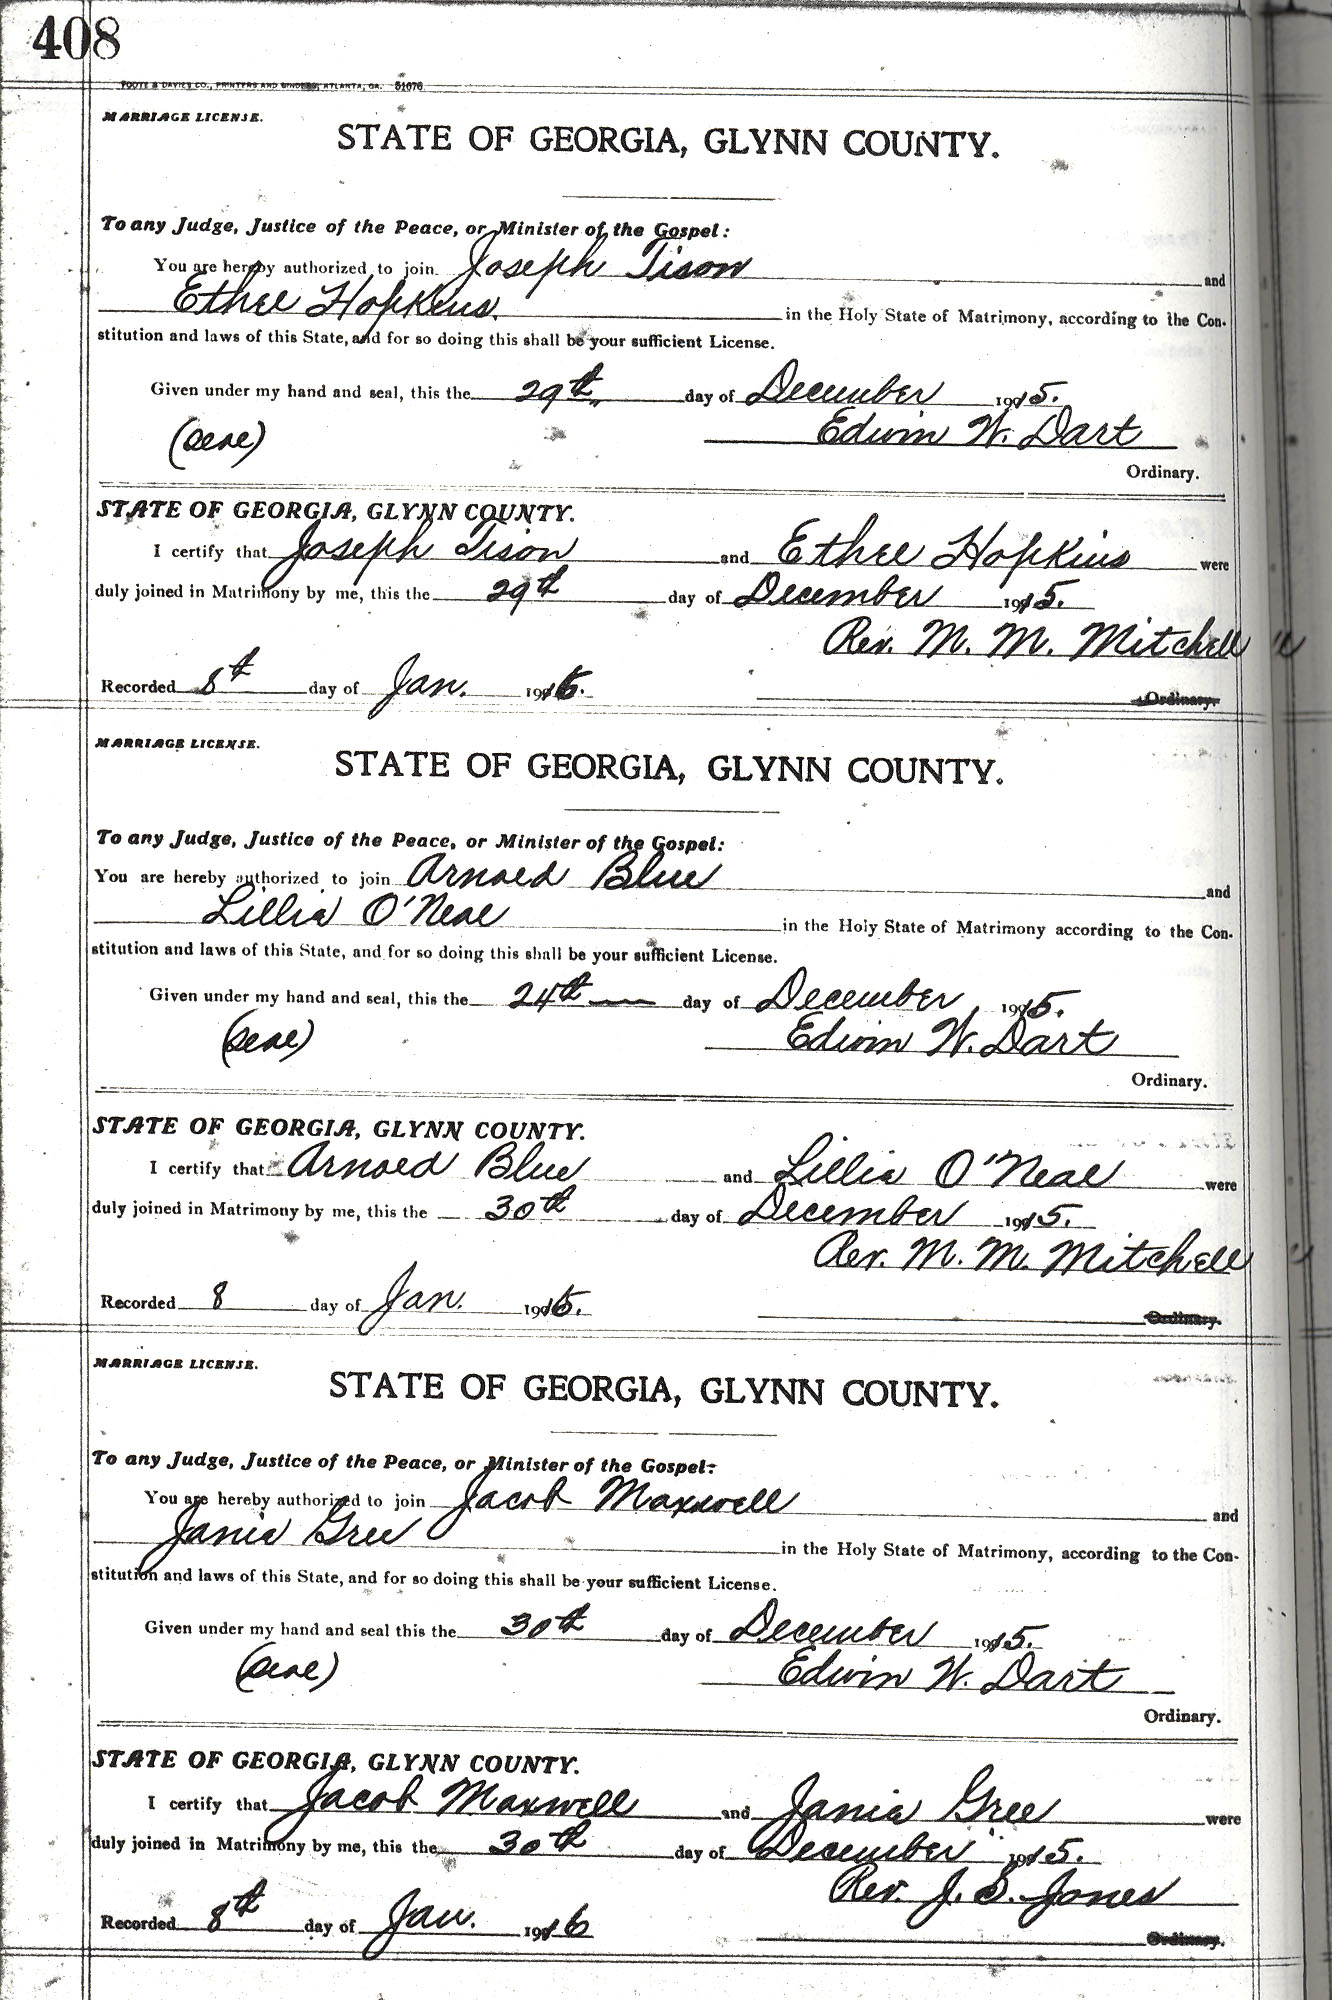 408
FOOTE & DAVIES CO., PRINTERS AND BINDERS, ATLANTA, GA. 51076
MARRIAGE LICENSE.
STATE OF GEORGIA, GLYNN COUNTY.
To any Judge, Justice of the Peace, or Minister of the Gospel:
You are hereby authorized to join Joseph Tison and
Ethel Hopkins. in the Holy State of Matrimony, according to the Con-
stitution and laws of this State, and for so doing this shall be your sufficient License.
Given under my hand and seal, this the 29th day of December 1915.
(seal) Edwin W. Dart
Ordinary.
STATE OF GEORGIA, GLYNN COUNTY.
I certify that Joseph Tison and Ethel Hopkins were
duly joined in Matrimony by me, this the 29th day of December 1915.
Rev. M. M. Mitchell
Recorded 8th day of Jan. 1916. Ordinary.
MARRIAGE LICENSE.
STATE OF GEORGIA, GLYNN COUNTY.
To any Judge, Justice of the Peace, or Minister of the Gospel:
You are hereby authorized to join Arnold Blue and
Lillia O'Neal in the Holy State of Matrimony according to the Con-
stitution and laws of this State, and for so doing this shall be your sufficient License.
Given under my hand and seal, this the 24th day of December 1915.
(seal) Edwin W. Dart
Ordinary.
STATE OF GEORGIA, GLYNN COUNTY.
I certify that Arnold Blue and Lillia O'Neal were
duly joined in Matrimony by me, this the 30th day of December 1915.
Rev. M. M. Mitchell
Recorded 8 day of Jan. 1916. Ordinary.
MARRIAGE LICENSE.
STATE OF GEORGIA, GLYNN COUNTY.
To any Judge, Justice of the Peace, or Minister of the Gospel:
You are hereby authorized to join Jacob Maxwell and
Jania Gree in the Holy State of Matrimony, according to the Con-
stitution and laws of this State, and for so doing this shall be your sufficient License.
Given under my hand and seal this the 30th day of December 1915.
(seal) Edwin W. Dart
Ordinary.
STATE OF GEORGIA, GLYNN COUNTY.
I certify that Jacob Maxwell and Jania Gree were
duly joined in Matrimony by me, this the 30th day of December 1915.
Rev. J. S. Jones
Recorded 8th day of Jan. 1916 Ordinary.